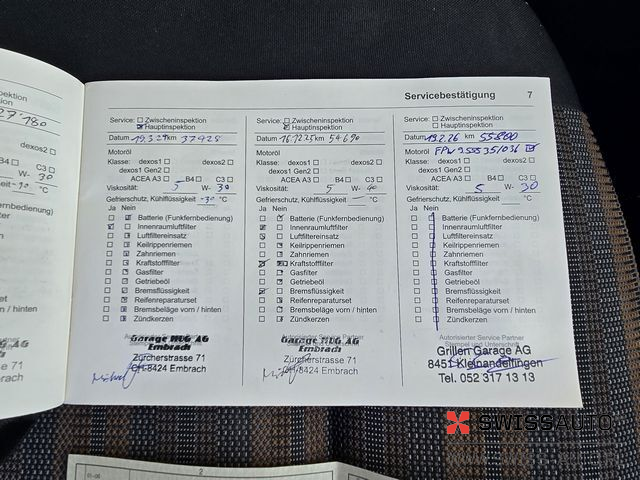 Servicebestätigung 7
27'180
W- 30
Service: Zwischeninspektion
Hauptinspektion
Datum 19.3.24 km 37928
Motoröl
Klasse: dexos1 dexos2
dexos1 Gen2
ACEA A3 B4 C3
Viskosität: 5 W- 30
Gefrierschutz, Kühlflüssigkeit -30 °C
Ja Nein
Batterie (Funkfernbedienung)
Innenraumluftfilter
Luftfiltereinsatz
Keilrippenriemen
Zahnriemen
Kraftstofffilter
Gasfilter
Getriebeöl
Bremsflüssigkeit
Reifenreparaturset
Bremsbeläge vorn / hinten
Zündkerzen
Garage HUG AG
Embrach
Zürcherstrasse 71
CH-8424 Embrach
Service: Zwischeninspektion
Hauptinspektion
Datum 16.12.25 km 54690
Motoröl
Klasse: dexos1 dexos2
dexos1 Gen2
ACEA A3 B4 C3
Viskosität: 5 W- 40
Gefrierschutz, Kühlflüssigkeit — °C
Ja Nein
Batterie (Funkfernbedienung)
Innenraumluftfilter
Luftfiltereinsatz
Keilrippenriemen
Zahnriemen
Kraftstofffilter
Gasfilter
Getriebeöl
Bremsflüssigkeit
Reifenreparaturset
Bremsbeläge vorn / hinten
Zündkerzen
Autorisierter Service Partner
Garage HUG AG
Embrach
Zürcherstrasse 71
CH-8424 Embrach
Service: Zwischeninspektion
Hauptinspektion
Datum 19.2.26 km 55800
Motoröl
Klasse: dexos1 dexos2
dexos1 Gen2
ACEA A3 B4 C3
Viskosität: 5 W- 30
Gefrierschutz, Kühlflüssigkeit °C
Ja Nein
Batterie (Funkfernbedienung)
Innenraumluftfilter
Luftfiltereinsatz
Keilrippenriemen
Zahnriemen
Kraftstofffilter
Gasfilter
Getriebeöl
Bremsflüssigkeit
Reifenreparaturset
Bremsbeläge vorn / hinten
Zündkerzen
Autorisierter Service Partner
Stempel und Unterschrift
Grillen Garage AG
8451 Kleinandelfingen
Tel. 052 317 13 13
SWISSAUTO